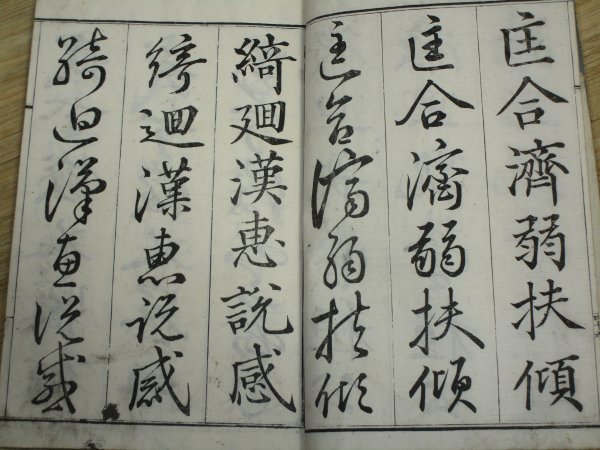 匡合濟弱扶傾
匡合濟弱扶傾
匡合濟弱扶傾
綺廻漢惠説感
綺廻漢惠説感
綺廻漢惠説感